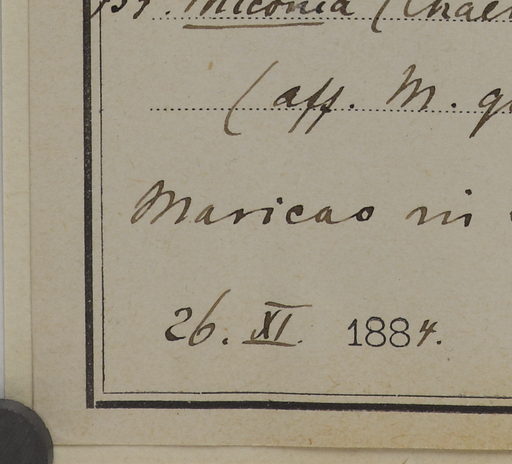 Miconia (Chae
(aff. M. g
Maricao in
26. XI. 1884.